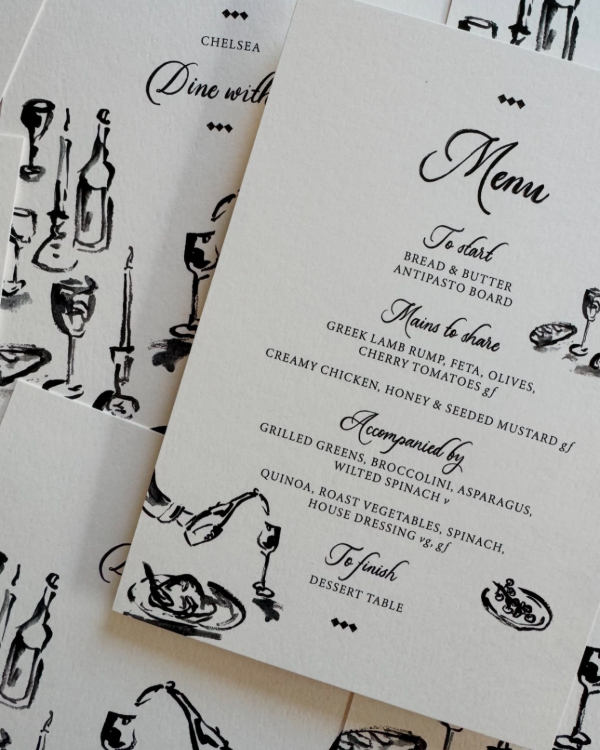 CHELSEA
Dine with
Menu
To start
BREAD & BUTTER
ANTIPASTO BOARD
Mains to share
GREEK LAMB RUMP, FETA, OLIVES,
CHERRY TOMATOES gf
CREAMY CHICKEN, HONEY & SEEDED MUSTARD gf
Accompanied by
GRILLED GREENS, BROCCOLINI, ASPARAGUS,
WILTED SPINACH v
QUINOA, ROAST VEGETABLES, SPINACH,
HOUSE DRESSING vg, gf
To finish
DESSERT TABLE